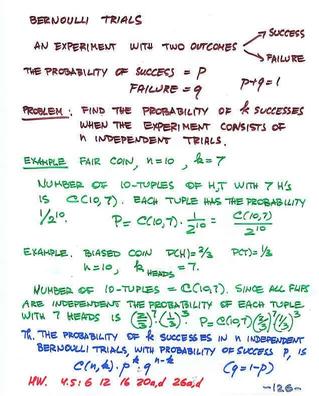 BERNOULLI TRIALS
SUCCESS
AN EXPERIMENT WITH TWO OUTCOMES
FAILURE
THE PROBABILITY OF SUCCESS = P
FAILURE = q
p+q=1
PROBLEM: FIND THE PROBABILITY OF k SUCCESSES
WHEN THE EXPERIMENT CONSISTS OF
n INDEPENDENT TRIALS.
EXAMPLE FAIR COIN, n=10, k=7
NUMBER OF 10-TUPLES OF H,T WITH 7 H'S
IS C(10,7). EACH TUPLE HAS THE PROBABILITY
1/2^10. P= C(10,7)·1/2^10 = C(10,7)/2^10
EXAMPLE. BIASED COIN P(H)=2/3 P(T)=1/3
n=10, k HEADS = 7.
NUMBER OF 10-TUPLES = C(10,7). SINCE ALL FLIPS
ARE INDEPENDENT THE PROBABILITY OF EACH TUPLE
WITH 7 HEADS IS (2/3)^7·(1/3)^3. P=C(10,7)(2/3)^7(1/3)^3
Th. THE PROBABILITY OF k SUCCESSES IN n INDEPENDENT
BERNOULLI TRIALS, WITH PROBABILITY OF SUCCESS P, IS
C(n,k)·p^k·q^n-k (q=1-p)
HW. 4.5: 6 12 16 20a,d 26a,d
-126-